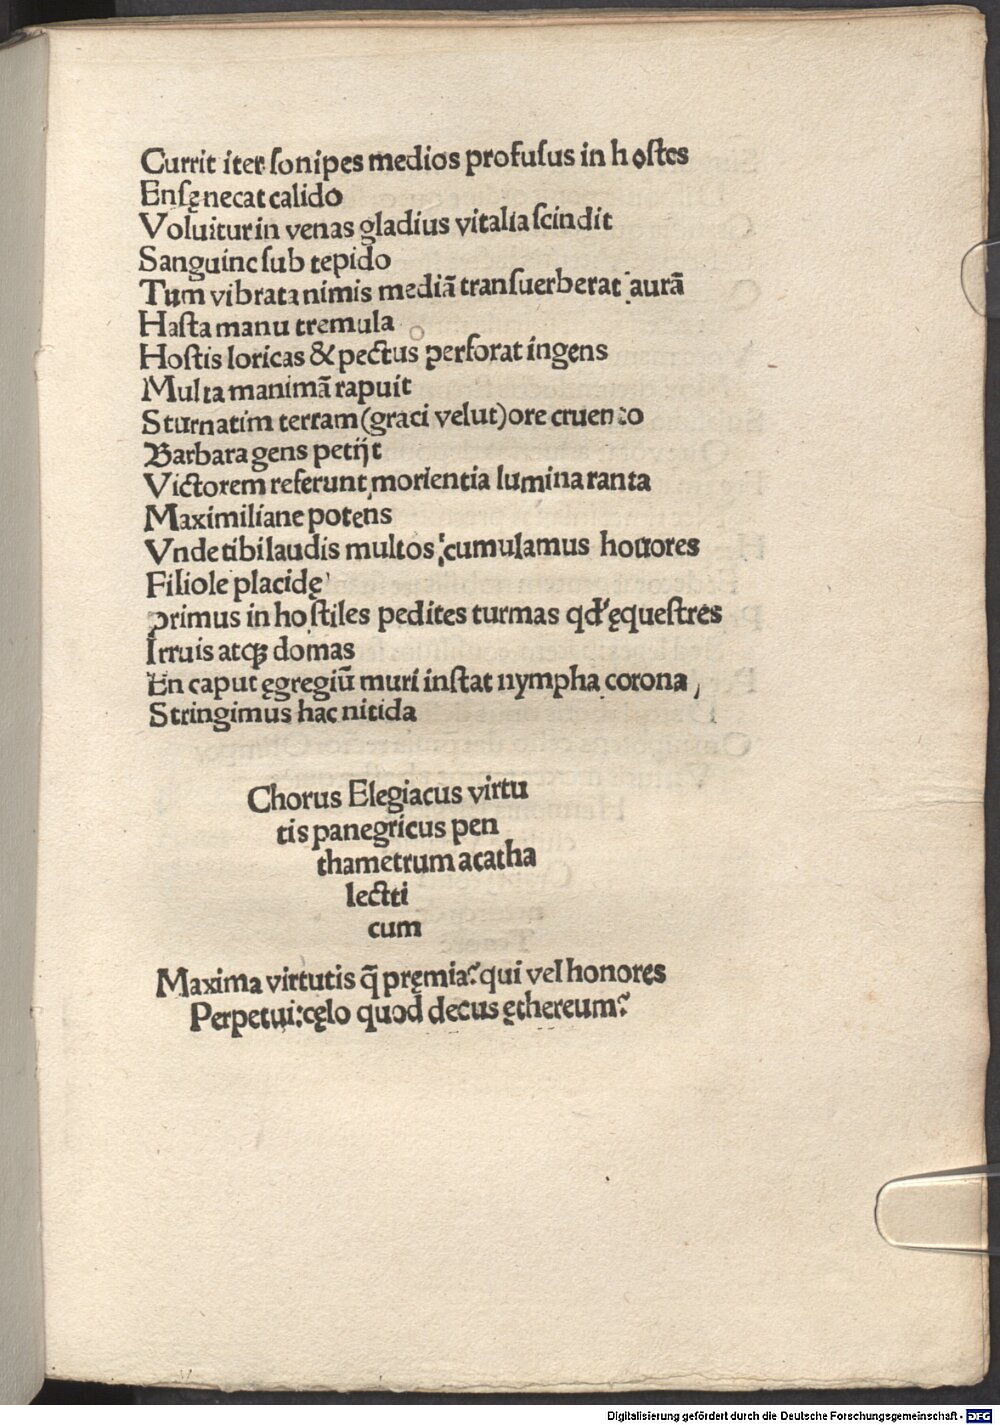 Currit iter sonipes medios profusus in hostes
Ensę necat calido
Voluitur in venas gladius vitalia scindit
Sanguine sub tepido
Tum vibrata nimis mediā transuerberat aurā
Hasta manu tremula
Hostis loricas & pectus perforat ingens
Multam animā rapuit
Sturnatim terram (graci velut) ore cruento
Barbara gens petijt
Victorem referunt morientia lumina ranta
Maximiliane potens
Vnde tibi laudis multos cumulamus honores
Filiole placidę
Primus in hostiles pedites turmas qđ ęquestres
Irruis atqꝫ domas
En caput ęgregiū muri instat nympha corona,
Stringimus hac nitida
Chorus Elegiacus virtu
tis panegricus pen
thametrum acatha
lectti
cum
Maxima virtutis q̄ pręmia? qui vel honores
Perpetui: cęlo quod decus ęthereum?
Digitalisierung gefördert durch die Deutsche Forschungsgemeinschaft - DFG